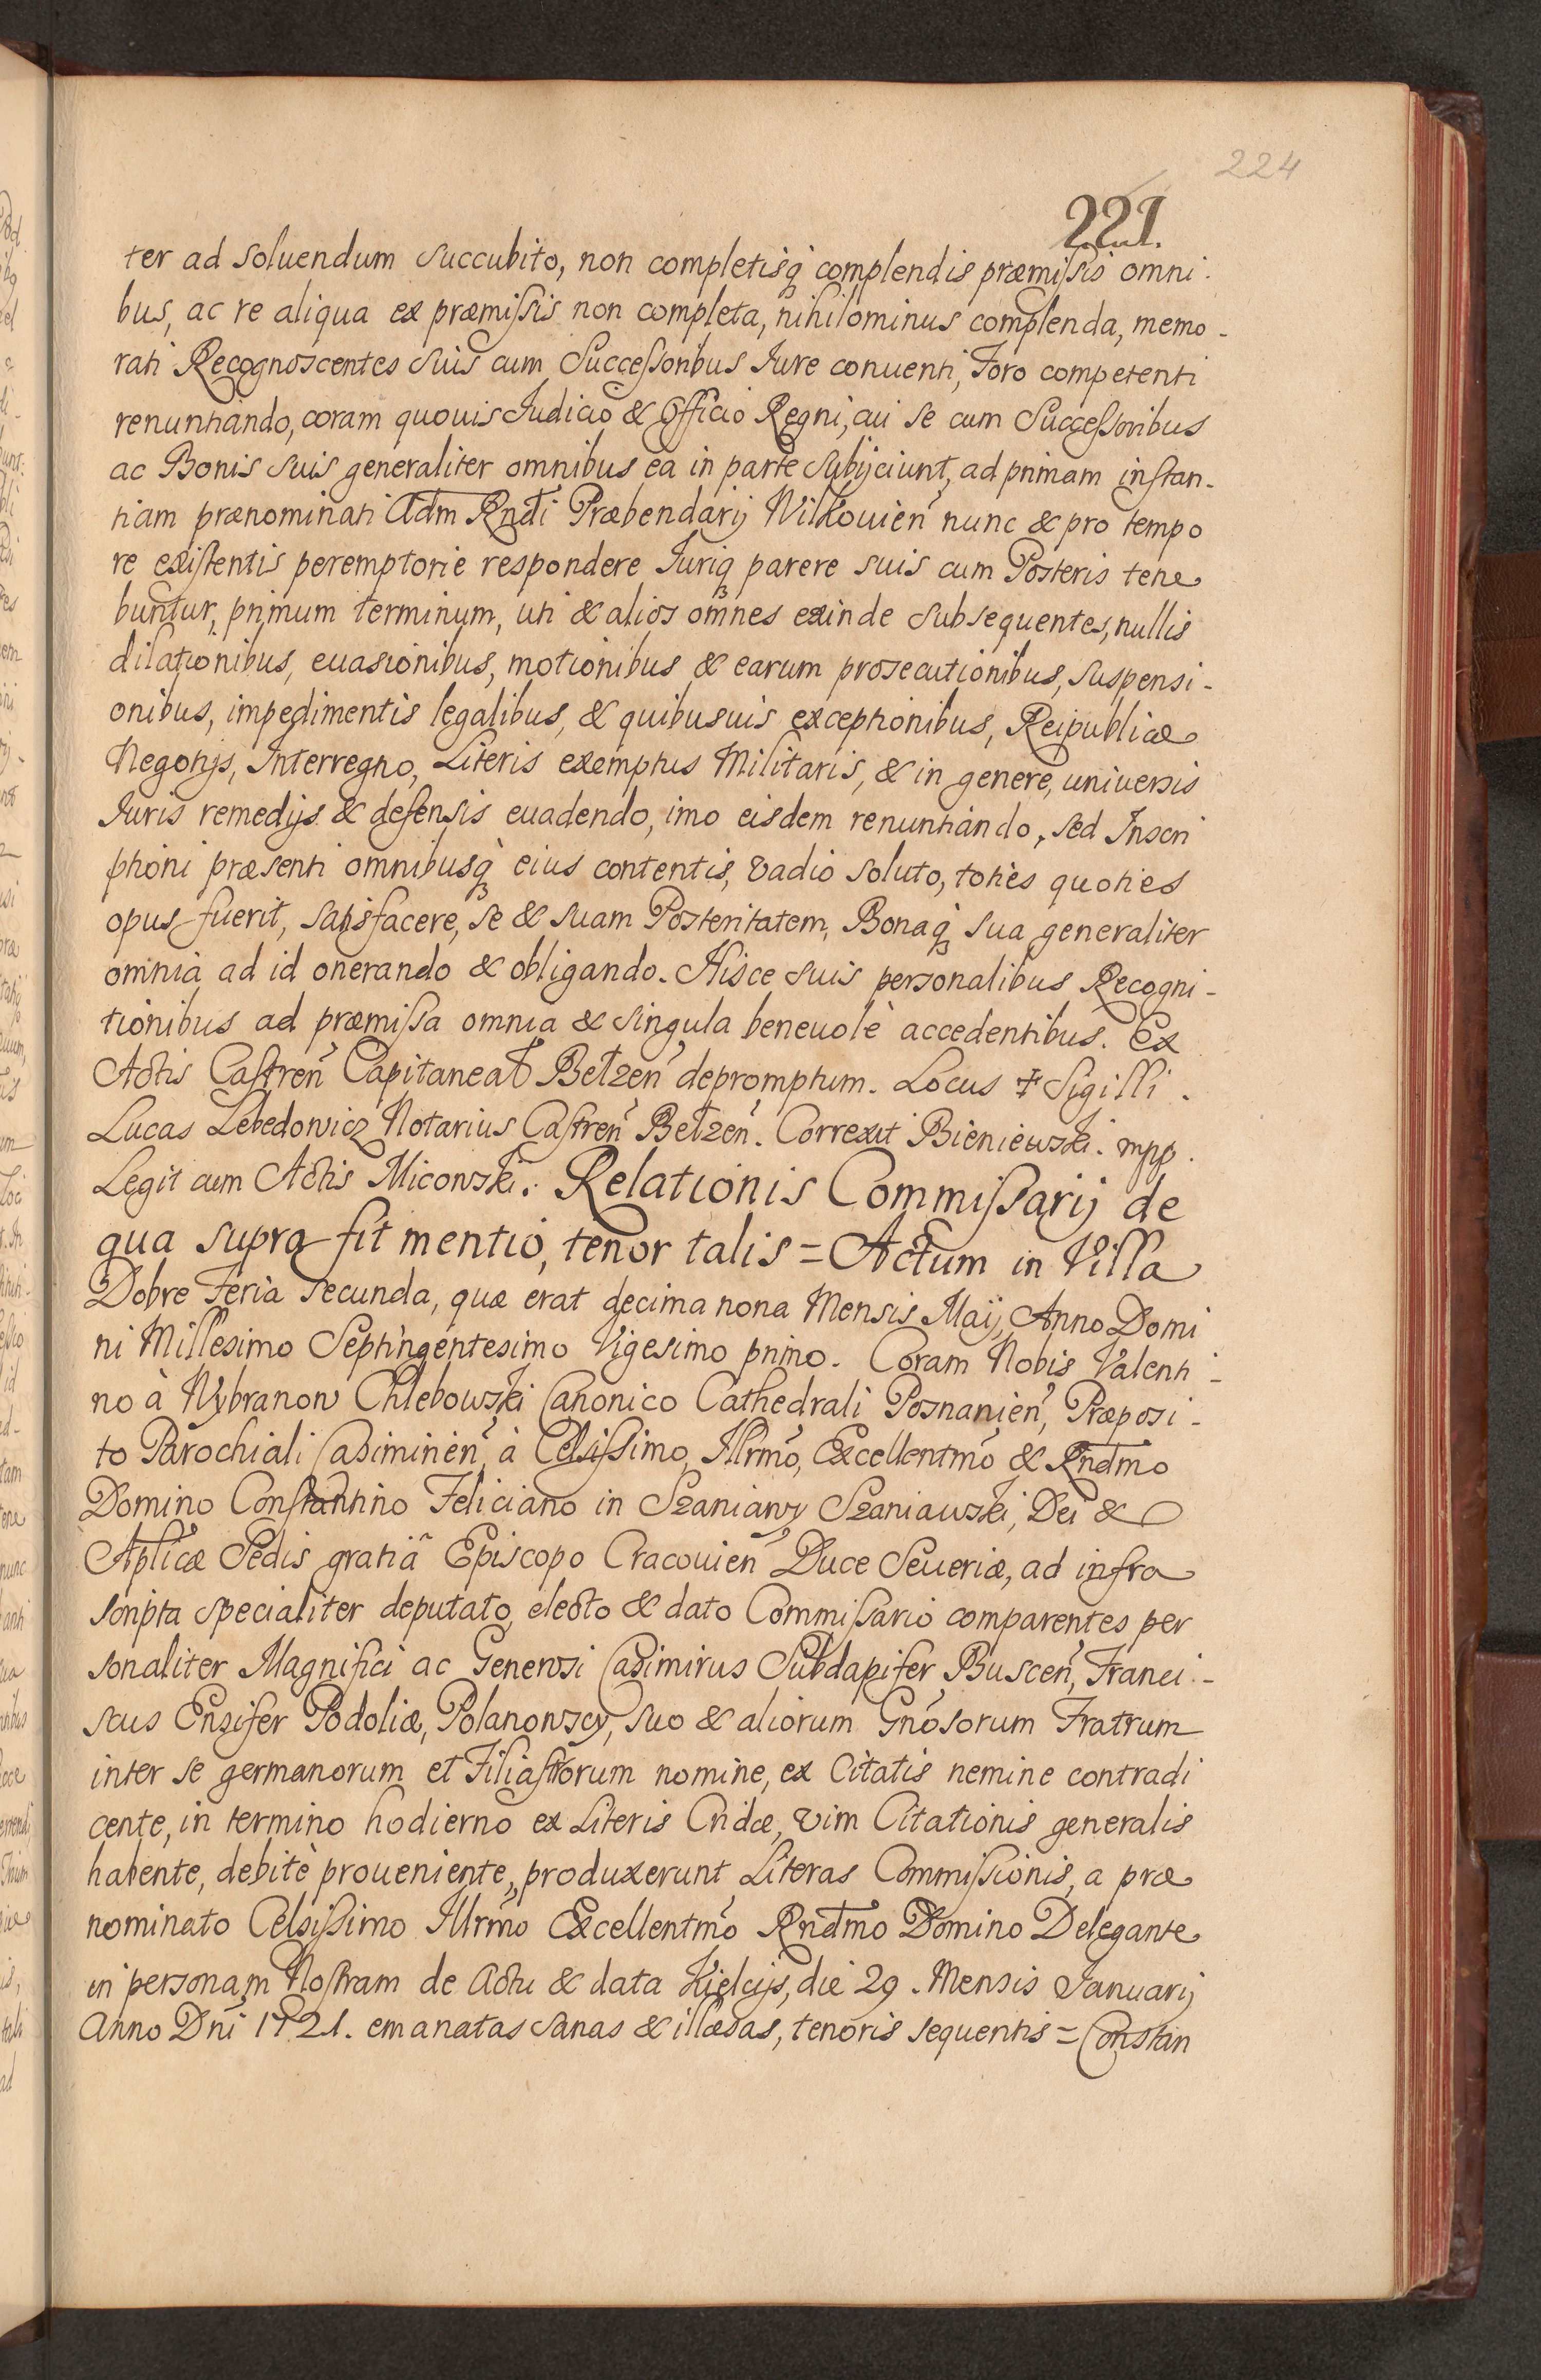 224
221.
ter ad soluendum succubito, non completisq́ complendis præmissis omni-
bus, ac re aliqua ex præmissis non completa, nihilominus complenda, memo-
rati Recognoscentes suis cum Successoribus Iure conuenti, Foro competenti
renuntiando, coram quouis Iudicio & Officio Regni, cui se cum Successoribus
ac Bonis suis generaliter omnibus ea in parte subijciunt, ad primam instan-
tiam prænominati Adm Rndi Præbendarij Wilkouień nunc & pro tempo
re existentis peremptorie respondere Iuriq parere suis cum Posteris tene
buntur, primum terminum, uti & alios omnes exinde subsequentes, nullis
dilationibus, euasionibus, motionibus & earum prosecutionibus, suspensi-
onibus, impedimentis legalibus, & quibusuis exceptionibus, Reipublicæ
Negotijs, Interregno, Literis exemptus Militaris, & in genere, universis
Iuris remedijs & defensis euadendo, imo eisdem renuntiando, sed Inscri
ptioni præsenti omnibusq́ eius contentis, vadio soluto, toties quoties
opus fuerit, satisfacere, se & suam Posteritatem, Bonaq́ sua generaliter
omnia ad id onerando & obligando. Hisce suis personalibus Recogni-
tionibus ad præmissa omnia & singula beneuolè accedentibus. Ex
Actis Castreń Capitaneat Bełzeń depromptum. Locus ✝ Sigilli.
Lucas Lebedowicz Notarius Castreń Bełzeń. Correxit Bieniewski. mpp.
Legit cum Actis Micowski. Relationis Commissarij de
qua supra fit mentio, tenor talis = Actum in Villa
Dobre Feria secunda, quæ erat decima nona Mensis Maij, Anno Domi
ni Millesimo Septingentesimo Vigesimo primo. Coram Nobis Valenti-
no à Wybranow Chlebowski Canonico Cathedrali Posnanień, Præposi-
to Parochiali Casimirień, à Celsissimo, Illrmo, Excellentmo & Rndmo
Domino Constantino Feliciano in Szaniawy Szaniawski, Dei &
Aplicæ Sedis gratiâ Episcopo Cracouień Duce Seueriæ, ad infra
scripta specialiter deputato, electo & dato Commissario comparentes per
sonaliter Magnifici ac Generosi Casimirus Subdapifer Busceń, Franci-
scus Ensifer Podoliæ, Polanowscy, suo & aliorum Gnosorum Fratrum
inter se germanorum et Filiastrorum nomine, ex Citatis nemine contradi
cente, in termino hodierno ex Literis Cridæ, vim Citationis generalis
habente, debitè proueniente, produxerunt Literas Commissionis, a præ
nominato Celsissimo Illrmo Excellentmo Rndmo Domino Delegante
in personam Nostram de Actu & data Kielcijs, die 29. Mensis Ianuarij
Anno Dni 1721. emanatas sanas & illæsas, tenoris sequentis = Constan